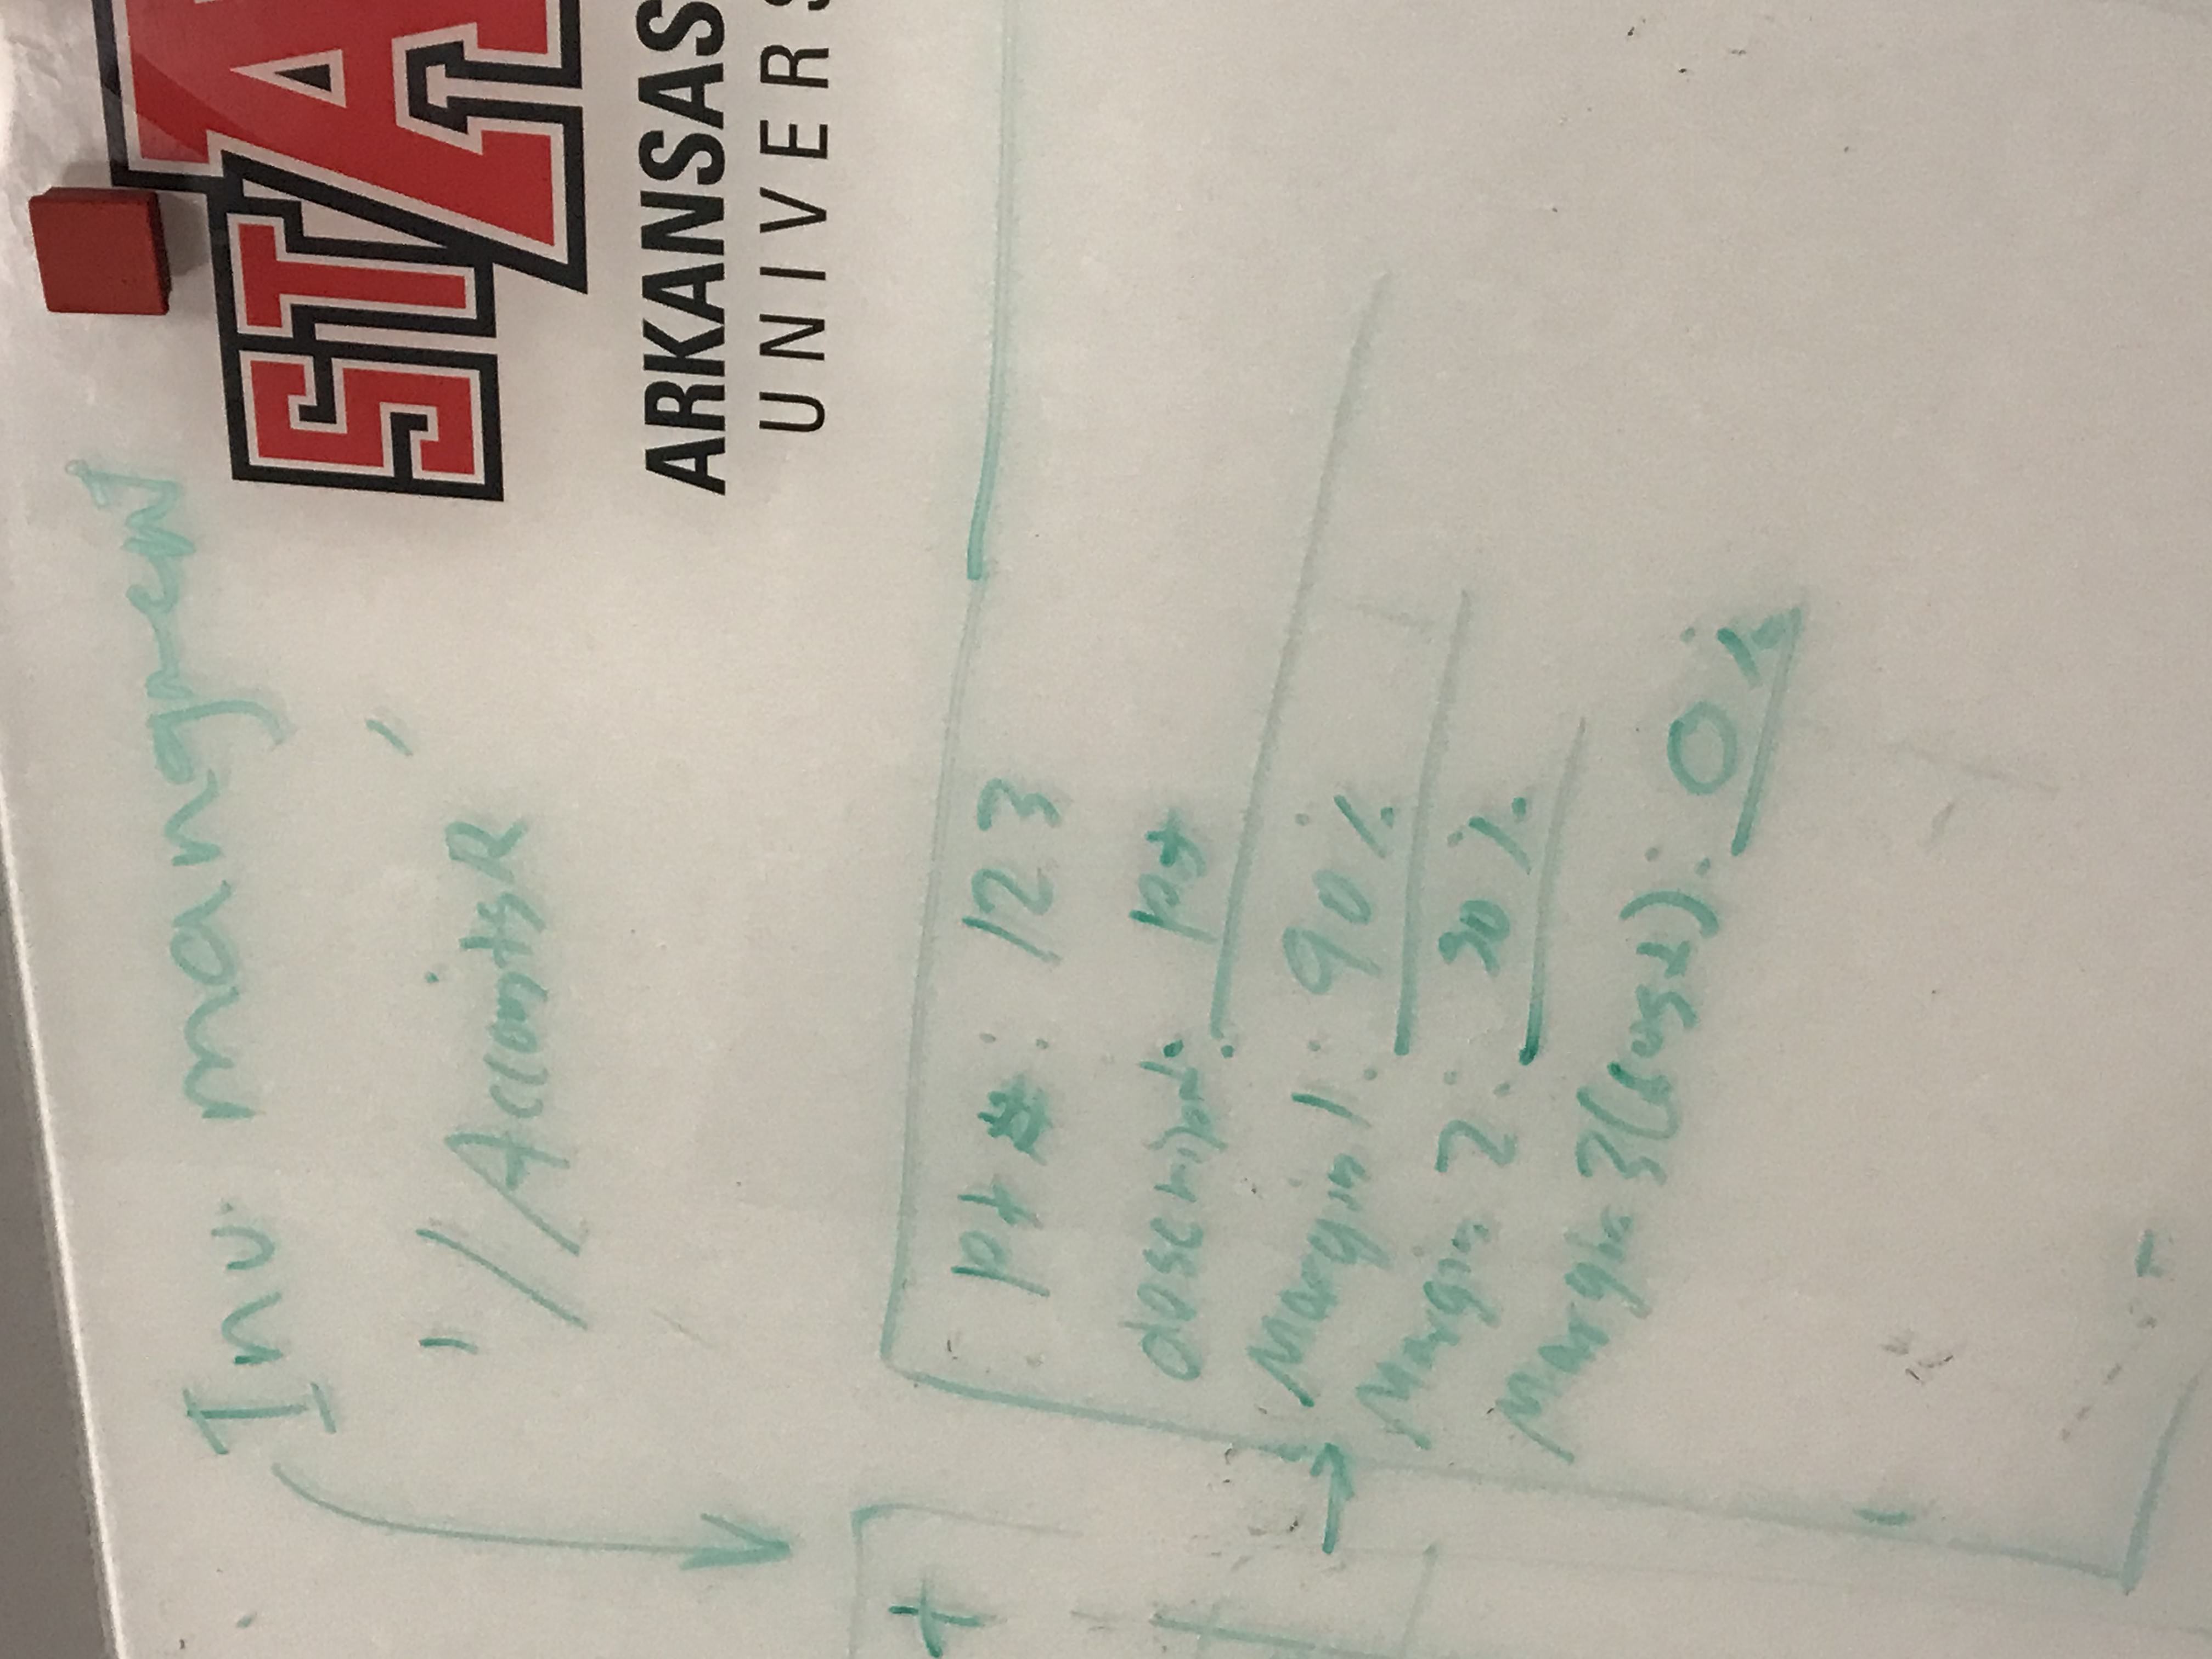 Inv. mangment
'//AccountsR'
STA
ARKANSAS
UNIVERS
+
Pt #: 123
descript: Pt
Margin 1: 90%
Margin 2: 30%
Margin 3 (cust): 0%